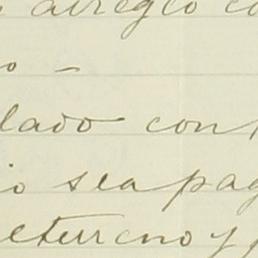 arreglo co
o –
lado con
io sea pag
el terreno y